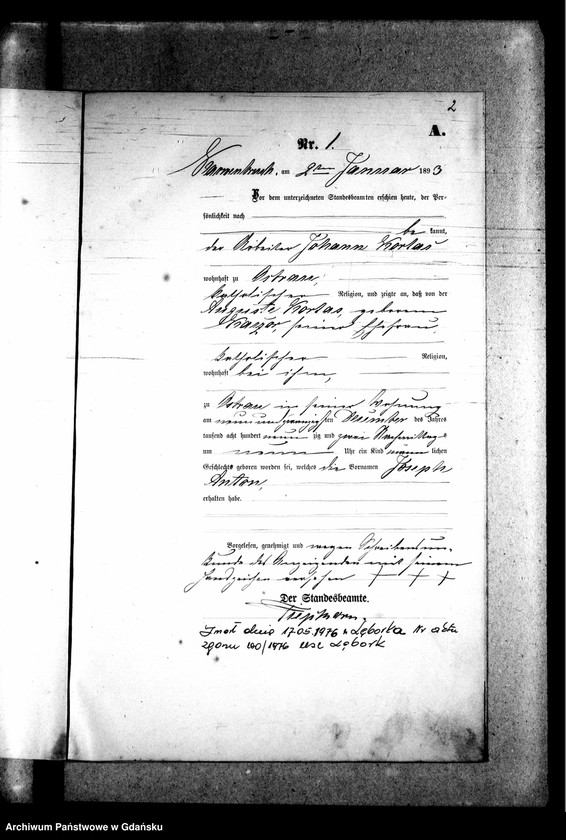 2
A.
Nr. 1.
am 2ten Januar 1893
Vor dem unterzeichneten Standesbeamten erschien heute, der Per-
sönlichkeit nach
be kannt,
der Arbeiter Johann Kortas
wohnhaft zu Ostrau,
katholischer Religion, und zeigte an, daß von der
Auguste Kortas, geborenen
seiner Ehefrau,
katholischer Religion,
wohnhaft bei ihm,
zu Ostrau in seiner Wohnung
am neun und zwanzigsten Dezember des Jahres
tausend acht hundert neun zig und zwei Nachmittags
um neun Uhr ein Kind männ lichen
Geschlechts geboren worden sei, welches die Vornamen Joseph
Anton,
erhalten habe.
Vorgelesen, genehmigt und wegen Schreibensun-
kunde des Anzeigenden mit seinem
Handzeichen versehen + + +
Der Standesbeamte.
Zmarł dnia 17.05.1976 w Lęborku Nr aktu
zgonu 190/1976 USC Lębork
Archiwum Państwowe w Gdańsku